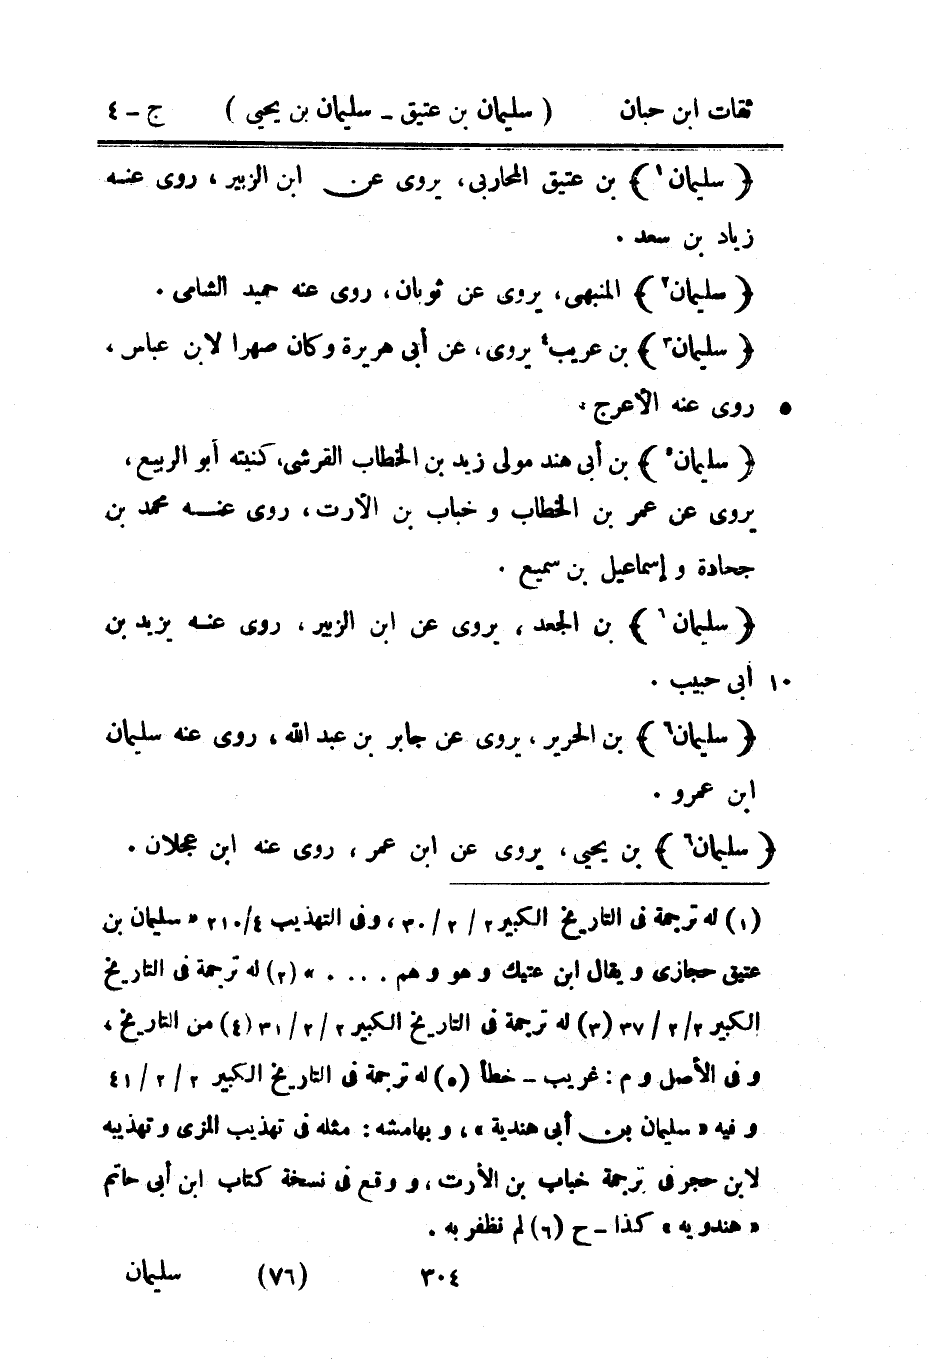 ثقات ابن حبان ( سليمان بن عتيق ـ سليمان بن يحيى ) ج ـ ٤
﴿ سليمان١ ﴾ بن عتيق المحاربى، يروى عن ابن الزبير ، روى عنه
زياد بن سعد .
﴿ سليمان٢ ﴾ المنبهى، يروى عن ثوبان، روى عنه حميد الشامى .
﴿ سليمان٣ ﴾ بن عريب٤ يروى، عن أبى هريرة وكان صهرا لابن عباس ،
٥ روى عنه الأعرج .
﴿ سليمان٥ ﴾ بن أبى هند مولى زيد بن الخطاب القرشى، كنيته أبو الربيع ،
يروى عن عمر بن الخطاب و خباب بن الأرت ، روى عنه محمد بن
جحادة و إسماعيل بن سميع .
﴿ سليمان٦ ﴾ بن الجعد ، يروى عن ابن الزبير ، روى عنه يزيد بن
١٠ أبى حبيب .
﴿ سليمان٦ ﴾ بن الحرير ، يروى عن جابر بن عبد الله ، روى عنه سليمان
ابن عمرو .
﴿ سليمان٦ ﴾ بن يحيى، يروى عن ابن عمر ، روى عنه ابن عجلان .
(١) له ترجمة فى التاريخ الكبير ٢ / ٢ / ٣٠ ، وفى التهذيب ٤/ ٢١٠ « سليمان بن
عتيق حجازى و يقال ابن عتيك و هو و هم . . . . » (٢) له ترجمة فى التاريخ
الكبير ٢/٢ / ٣٧ (٣) له ترجمة فى التاريخ الكبير ٢ / ٢ / ٣١ (٤) من التاريخ ،
و فى الأصل و م : غريب ـ خطأ (٥) له ترجمة فى التاريخ الكبير ٢ / ٢ / ٤١
و فيه « سليمان بن أبى هندية » ، و بهامشه : مثله فى تهذيب المزى و تهذيبه
لابن حجر فى ترجمة خباب بن الأرت ، و وقع فى نسخة كتاب ابن أبى حاتم
« هندويه » كذا ـ ح (٦) لم نظفر به .
٣٠٤ (٧٦) سليمان